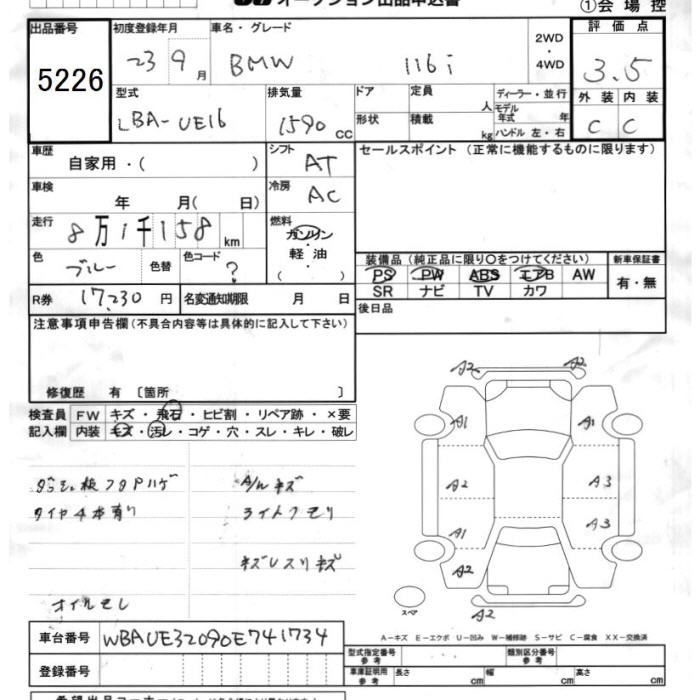 オークション出品申込書
①会場控
出品番号 初度登録年月 車名・グレード 評価点
5226 23 9月 BMW 116i 2WD・4WD 3.5
型式 排気量 ドア 定員 人 ディーラー・並行 外装 内装
LBA-UE16 1590 CC 形状 積載 kg モデル年式 年 ハンドル 左・右 C C
車歴 シフト セールスポイント (正常に機能するものに限ります)
自家用・( ) AT
車検 冷房
年 月( 日) AC
走行 8万1千158 km 燃料
ガソリン
軽油
( )
色 ブルー 色替 色コード ?
装備品 (純正品に限り○をつけてください) 新車保証書
PS PW ABS エアB AW 有・無
SR ナビ TV カワ
R券 17,230 円 名変通知期限 月 日 後日品
注意事項申告欄 (不具合内容等は具体的に記入して下さい)
修復歴 有 〔箇所 〕
検査員 FW キズ・飛石・ヒビ割・リペア跡・×要
記入欄 内装 キズ・汚レ・コゲ・穴・スレ・キレ・破レ
A2 A2
A1 A1
A2 A3
A3
A1
A2
A2
スペア
フタハゲ A/W キズ
タイヤ4本有り ライトクモリ
オイルモレ
A-キズ E-エクボ U-凹み W-補修跡 S-サビ C-腐食 XX-交換済
車台番号 WBAUE32090E741734
型式指定番号 参考 類別区分番号 参考
登録番号 車庫証明用 参考 長さ cm 幅 cm 高さ cm
希望出品コーナー